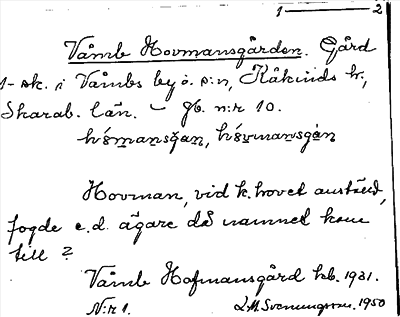 1 — 2
Våmb Hovmansgården. Gård
1-sk. i Våmbs by o. s:n, Kåkinds hd,
Skarab. län. – Gb. n:r 10.
hóm̲ansga̲n, hóvm̲ansgån
Hovman, vid k. hovet anställd,
fogde e.d. ägare då namnet kom
till?
Våmb Hofmansgård hb. 1931.
N:r 1. 1950